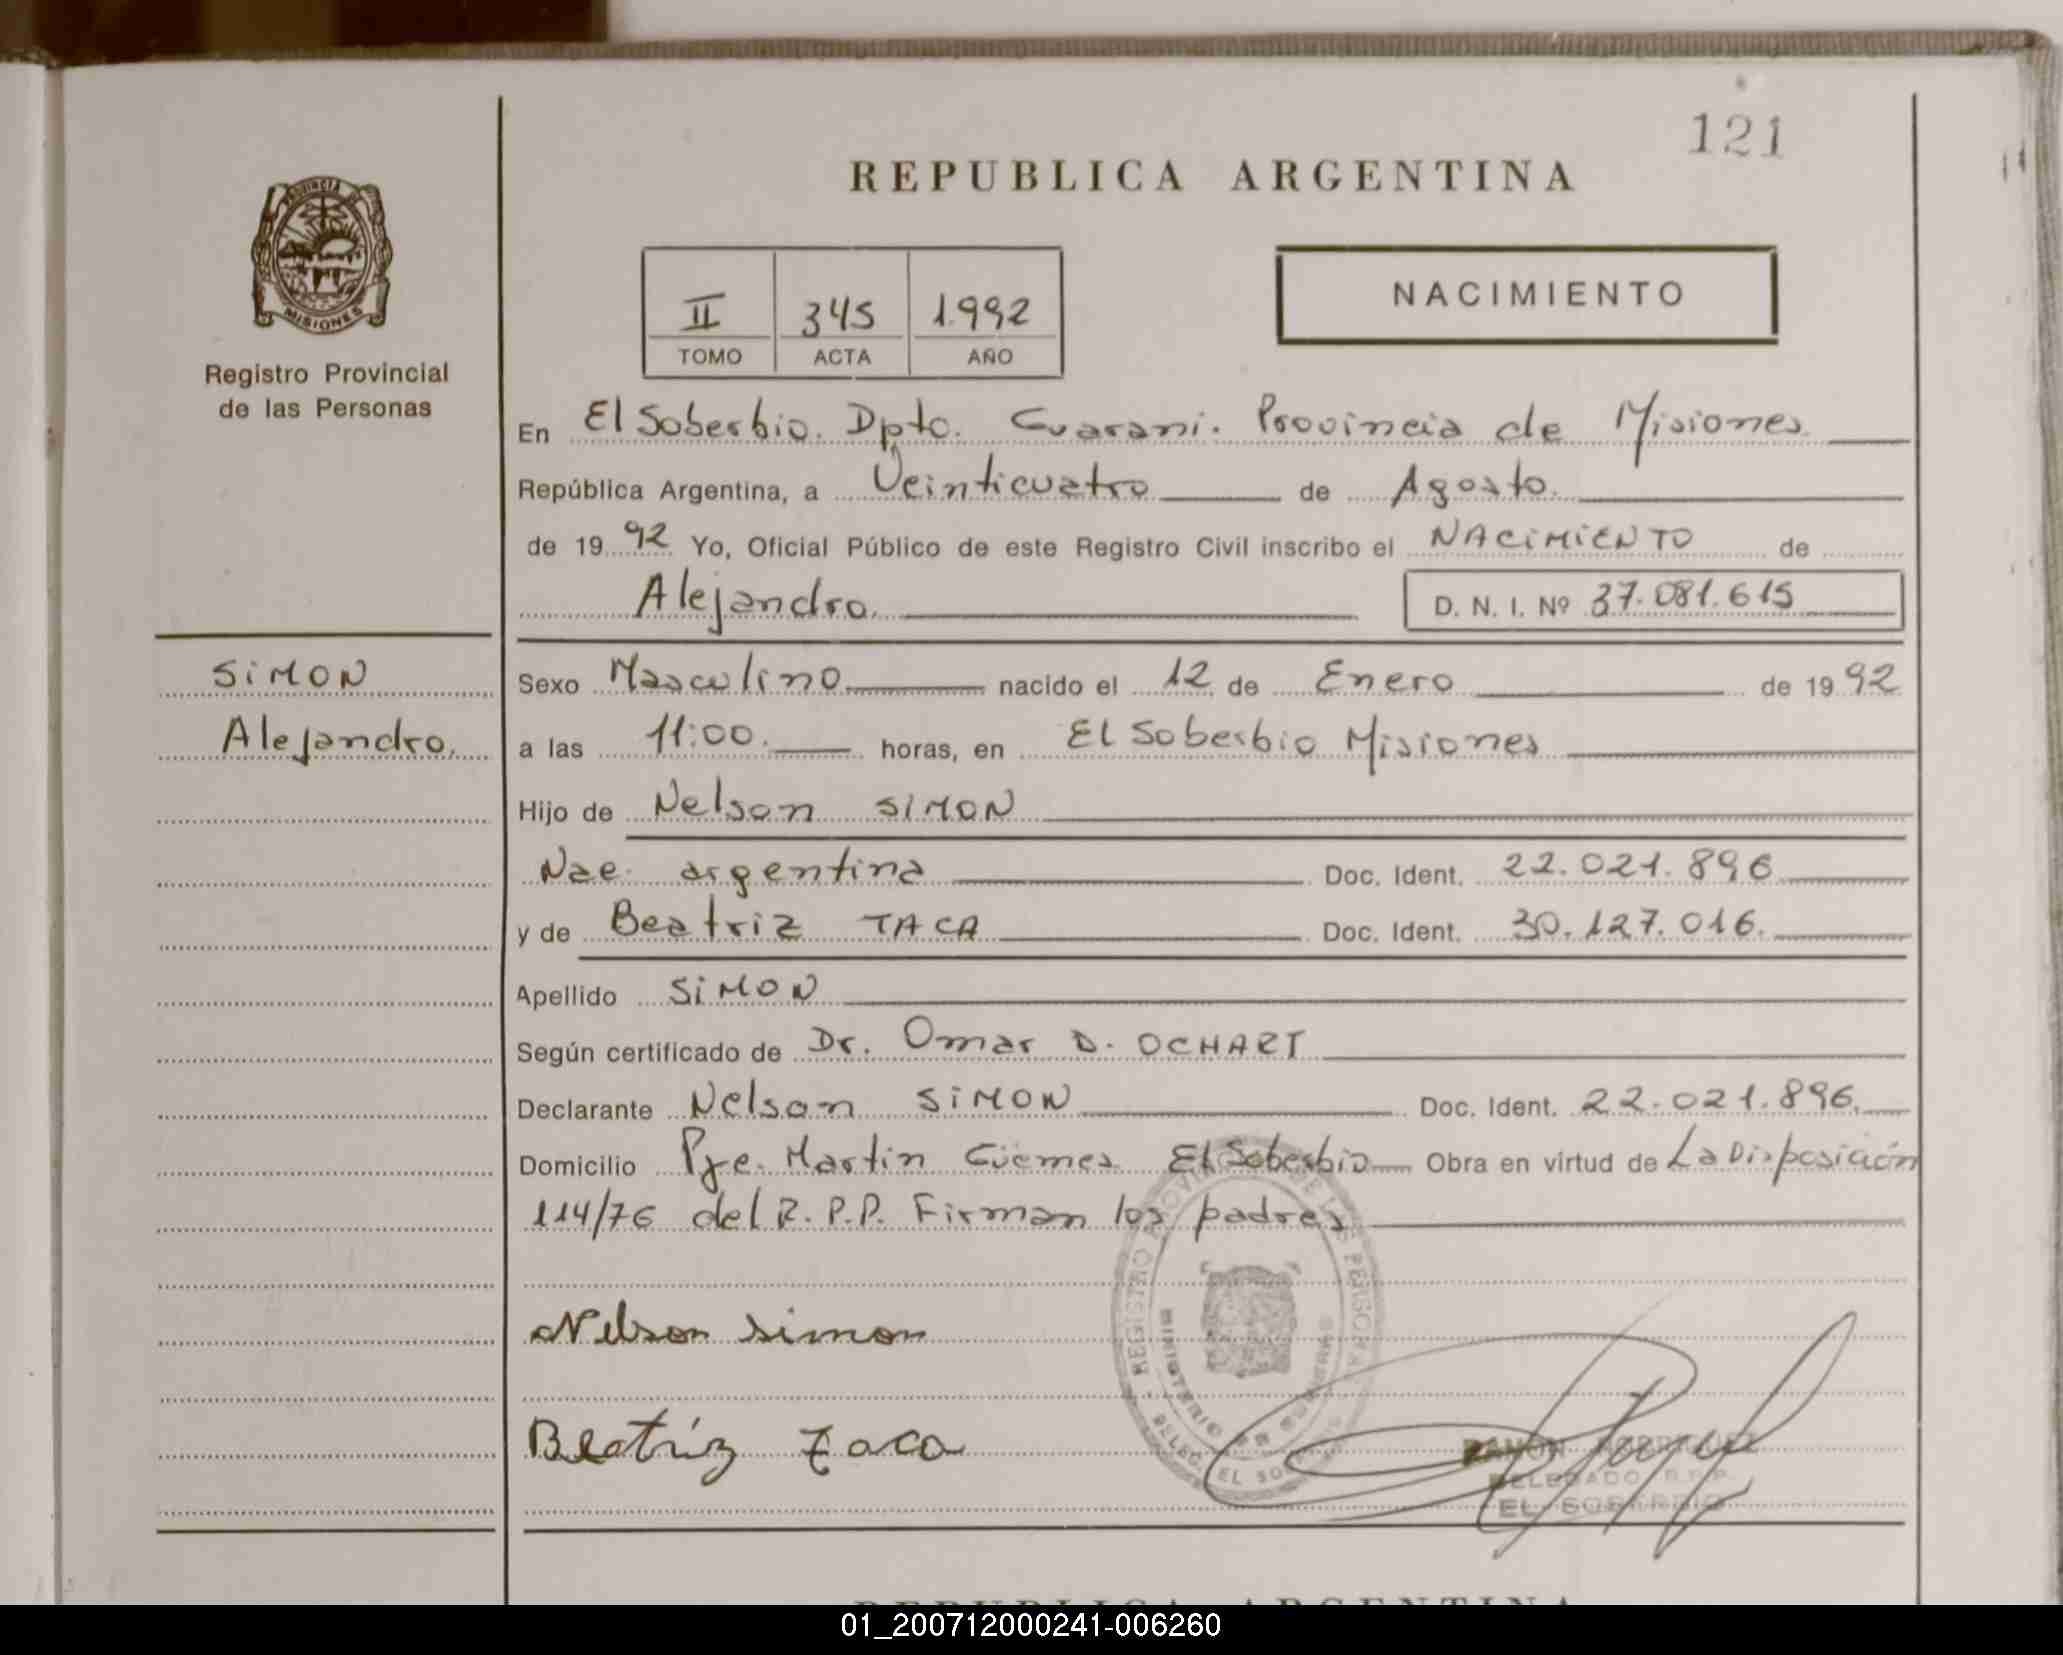 121
REPUBLICA ARGENTINA
PROVINCIA DE
MISIONES
Registro Provincial
de las Personas
II 345 1.992
TOMO ACTA AÑO
NACIMIENTO
En El Soberbio. Dpto. Guarani. Provincia de Misiones
República Argentina, a Veinticuatro de Agosto.
de 19 92 Yo, Oficial Público de este Registro Civil inscribo el NACIMIENTO de
Alejandro. D. N. I. Nº 37.081.615
SIMON
Alejandro.
Sexo Masculino nacido el 12 de Enero de 19 92
a las 11:00. horas, en El Soberbio Misiones
Hijo de Nelson SIMON
Nac. argentina Doc. Ident. 22.021.896
y de Beatriz TACA Doc. Ident. 30.127.016.
Apellido SIMON
Según certificado de Dr. Omar D. OCHART
Declarante Nelson SIMON Doc. Ident. 22.021.896.
Domicilio Pje. Martin Güemes El Soberbio Obra en virtud de La Disposición
114/76 del R.P.P. Firman los padres
Nelson simon
Beatriz Taca
REGISTRO PROVINCIAL DE LAS PERSONAS
MINISTERIO DE GOBIERNO
DELEG. EL SOBERBIO
RAMON RODRIGUEZ
DELEGADO R.P.P.
EL SOBERBIO
REPUBLICA ARGENTINA
01_200712000241-006260